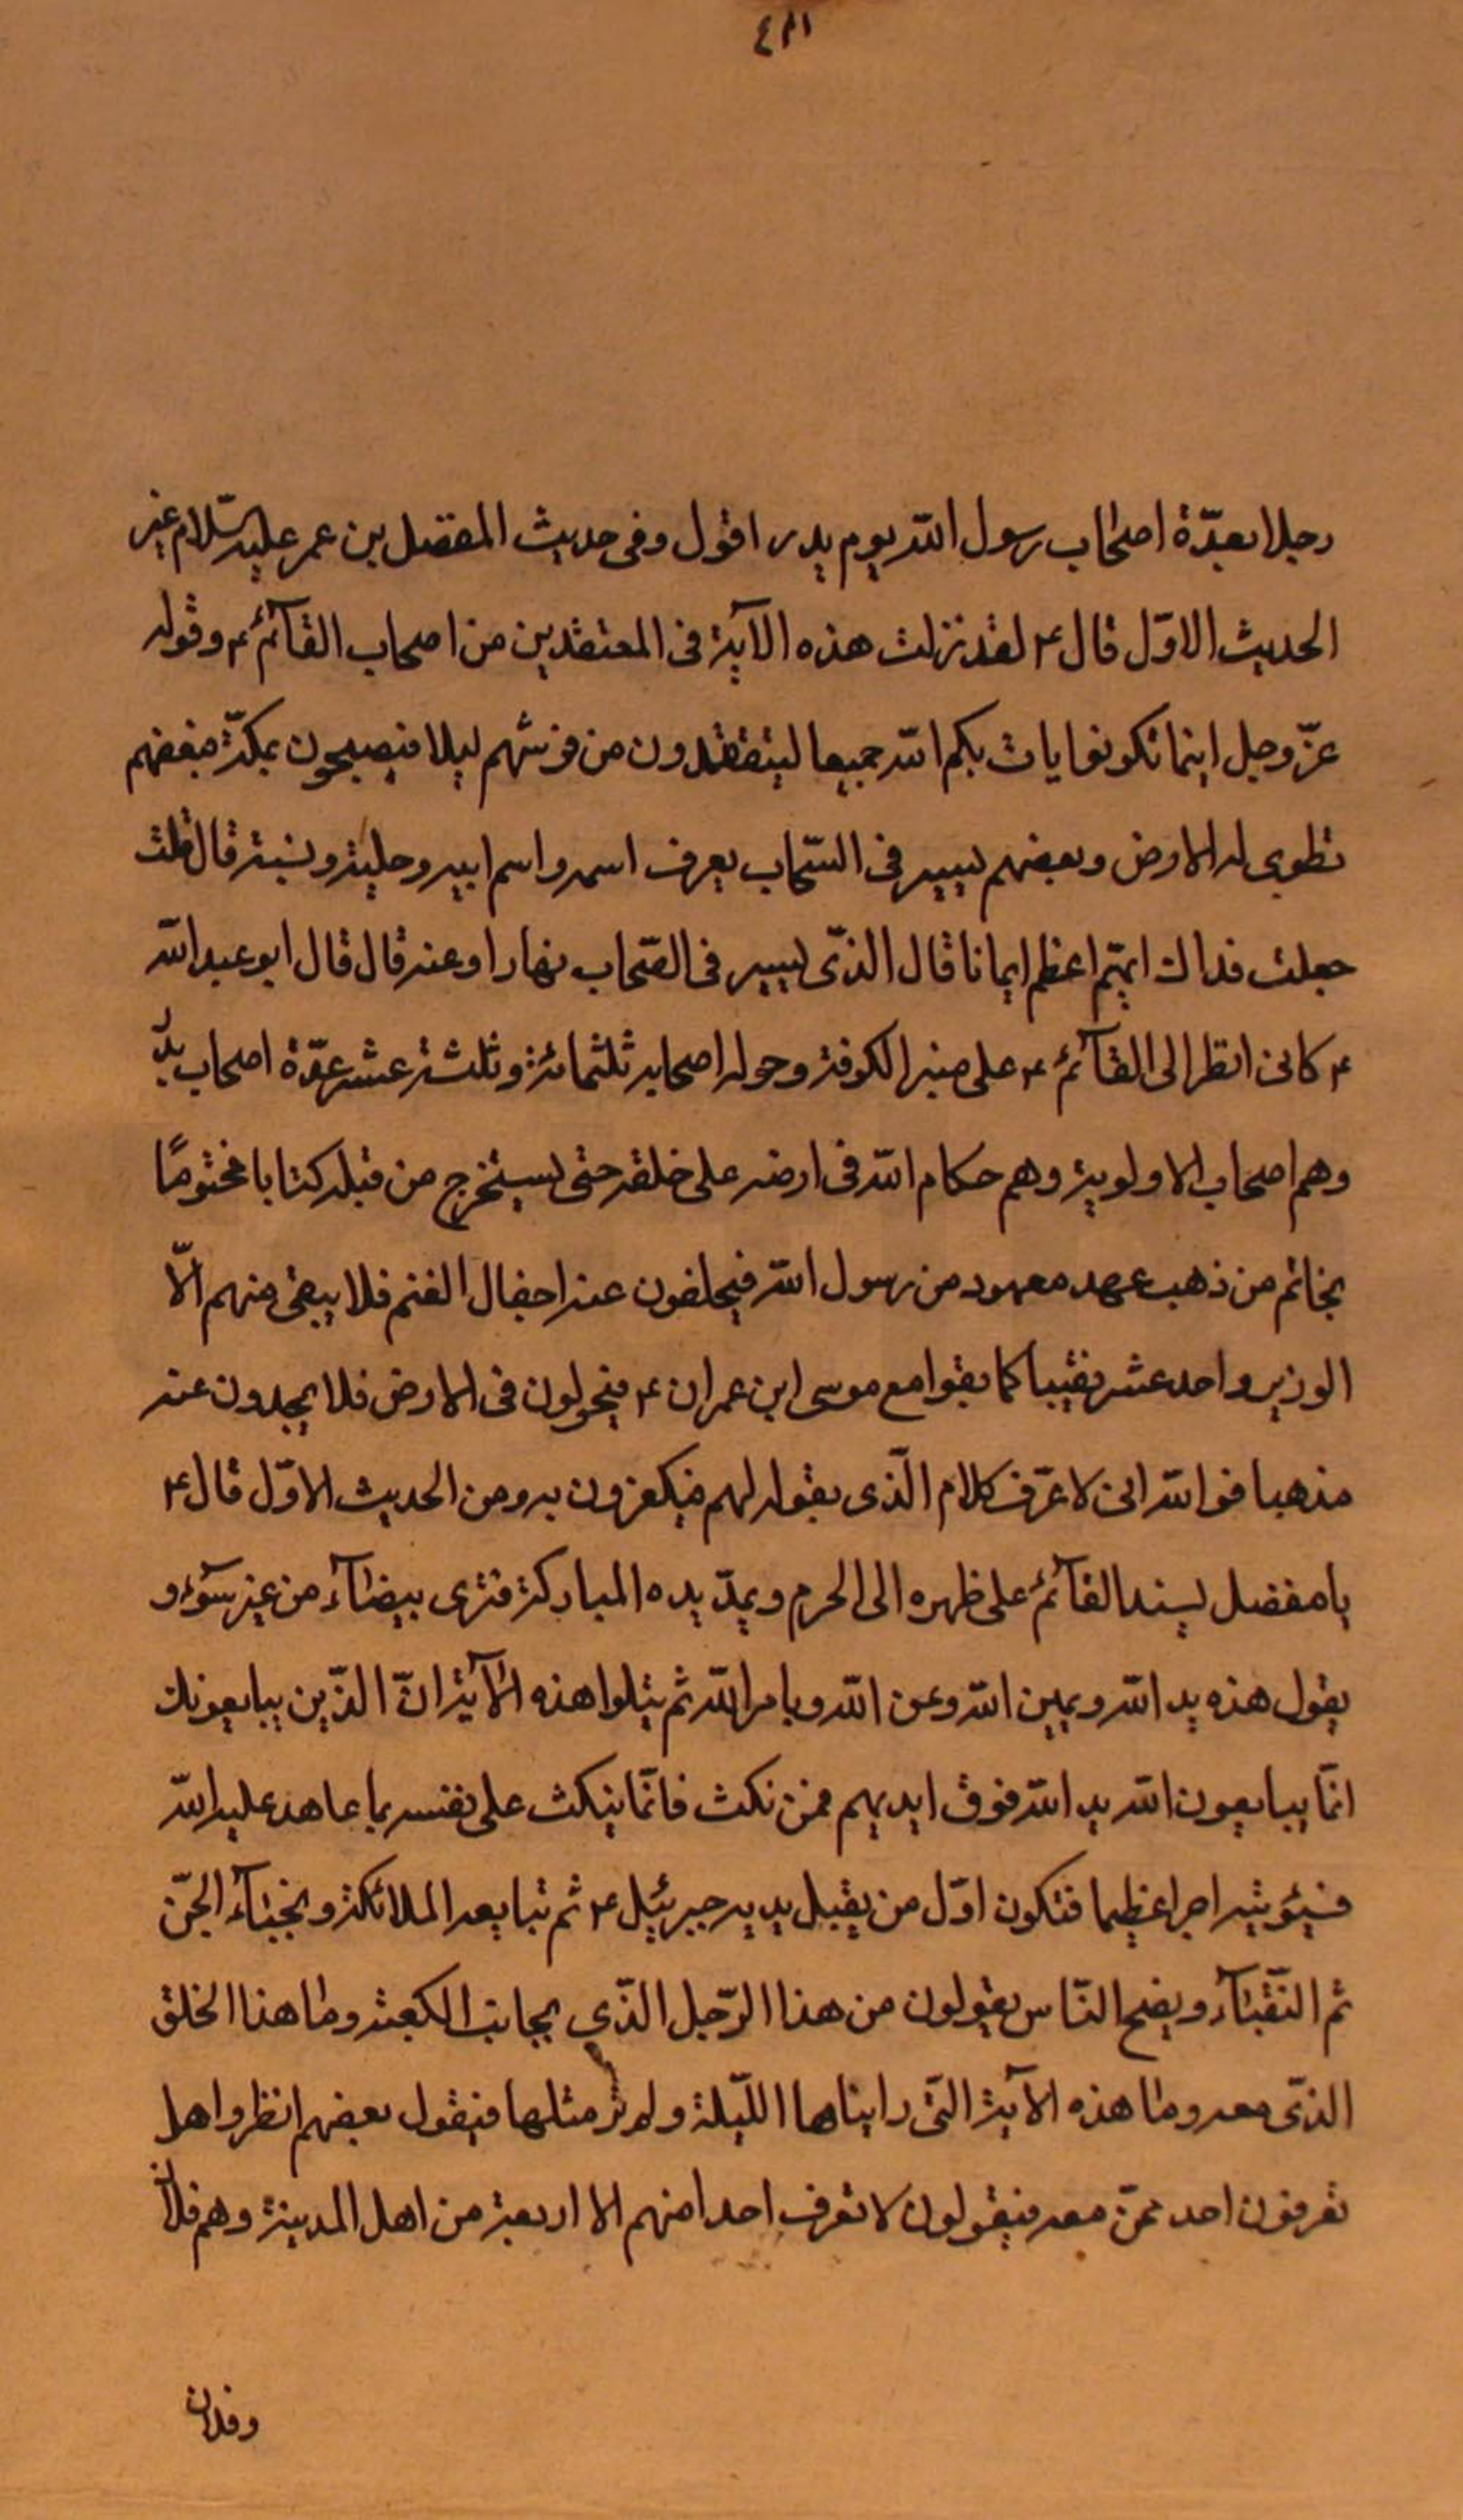 رجلا بعدّة اصحاب رسول الله يوم بدر اقول وفى حديث المفضل بن عمر عليه السّلام غير
الحديث الاوّل قال ع لقد نزلت هذه الآية فى المعتقدين من اصحاب القآئم ع وقوله
عزّ وجل اينما تكونوا يات بكم الله جميعا ليتفقدون من فرشهم ليلا فيصبحون بمكّة فبعضهم
تطوى له الارض وبعضهم يسير فى السّحاب يعرف اسمه واسم ابيه وحليته ونسبته قال قلت
جعلت فداك ايّهم اعظم ايمانا قال الذّى يسير فى السّحاب نهارا وعنه قال قال ابو عبد الله
ع كانى انظر الى القآئم ع على منبر الكوفة وحوله اصحابه ثلثمائة وثلثة عشر عدّة اصحاب بدر
وهم اصحاب الاولوية وهم حكام الله فى ارضه على خلقه حتى يستخرج من قبله كتابا مختومًا
بخاتم من ذهب عهد معهود من رسول الله فيجلفون عنه اجفال الغنم فلا يبقى منهم الّا
الوزير واحد عشر نقيبا كما بقوا مع موسى ابن عمران ع فيجولون فى الارض فلا يجدون عنه
مذهبا فو الله انى لاعرّف كلام الّذى يقوله لهم فيكفرون به ومن الحديث الاوّل قال ع
يا مفضل يسند القآئم على ظهره الى الحرم ويمدّ يده المباركة فترى بيضآء من غير سوء و
يقول هذه يد الله ويمين الله وعن الله وبامر الله ثم يتلوا هذه الآية انّ الذّين يبايعونك
انّما يبايعون الله يد الله فوق ايديهم فمن نكث فانّما ينكث على نفسه بما عاهد عليه الله
فسيؤتيه اجرا عظيما فتكون اوّل من يقبل يديه جبرئيل ع ثم تبايعه الملائكة ونجبآء الجنّ
ثم النّقبآء ويضج النّاس يقولون من هذا الرّجل الذّى بجانب الكعبة وما هذا الخلق
الذّى معه وما هذه الآية التّى رايناها اللّيلة ولم نر مثلها فيقول بعضهم انظروا هل
تعرفون احد ممّن معه فيقولون لا نعرف احدا منهم الا اربعة من اهل المدينة وهم فلان
وفلان